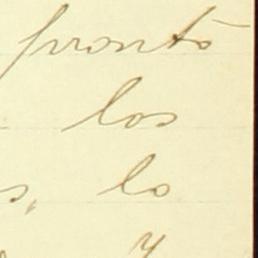 pronto
los
s, lo
y